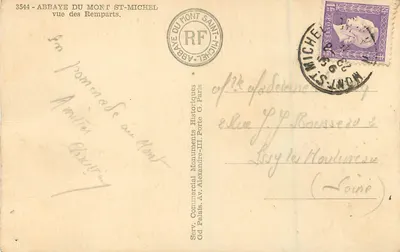 3544 - ABBAYE DU MONT ST-MICHEL
vue des Remparts.
ABBAYE DU MONT SAINT-MICHEL
RF
MONT-ST-MICHEL
en promenade au Mont
Amitiés
Serv. Commercial Monuments Historiques
Gd Palais. Av. Alexandre-III. Porte G. Paris
Rue J J Rousseau
Issy les Moulineaux
(Seine)